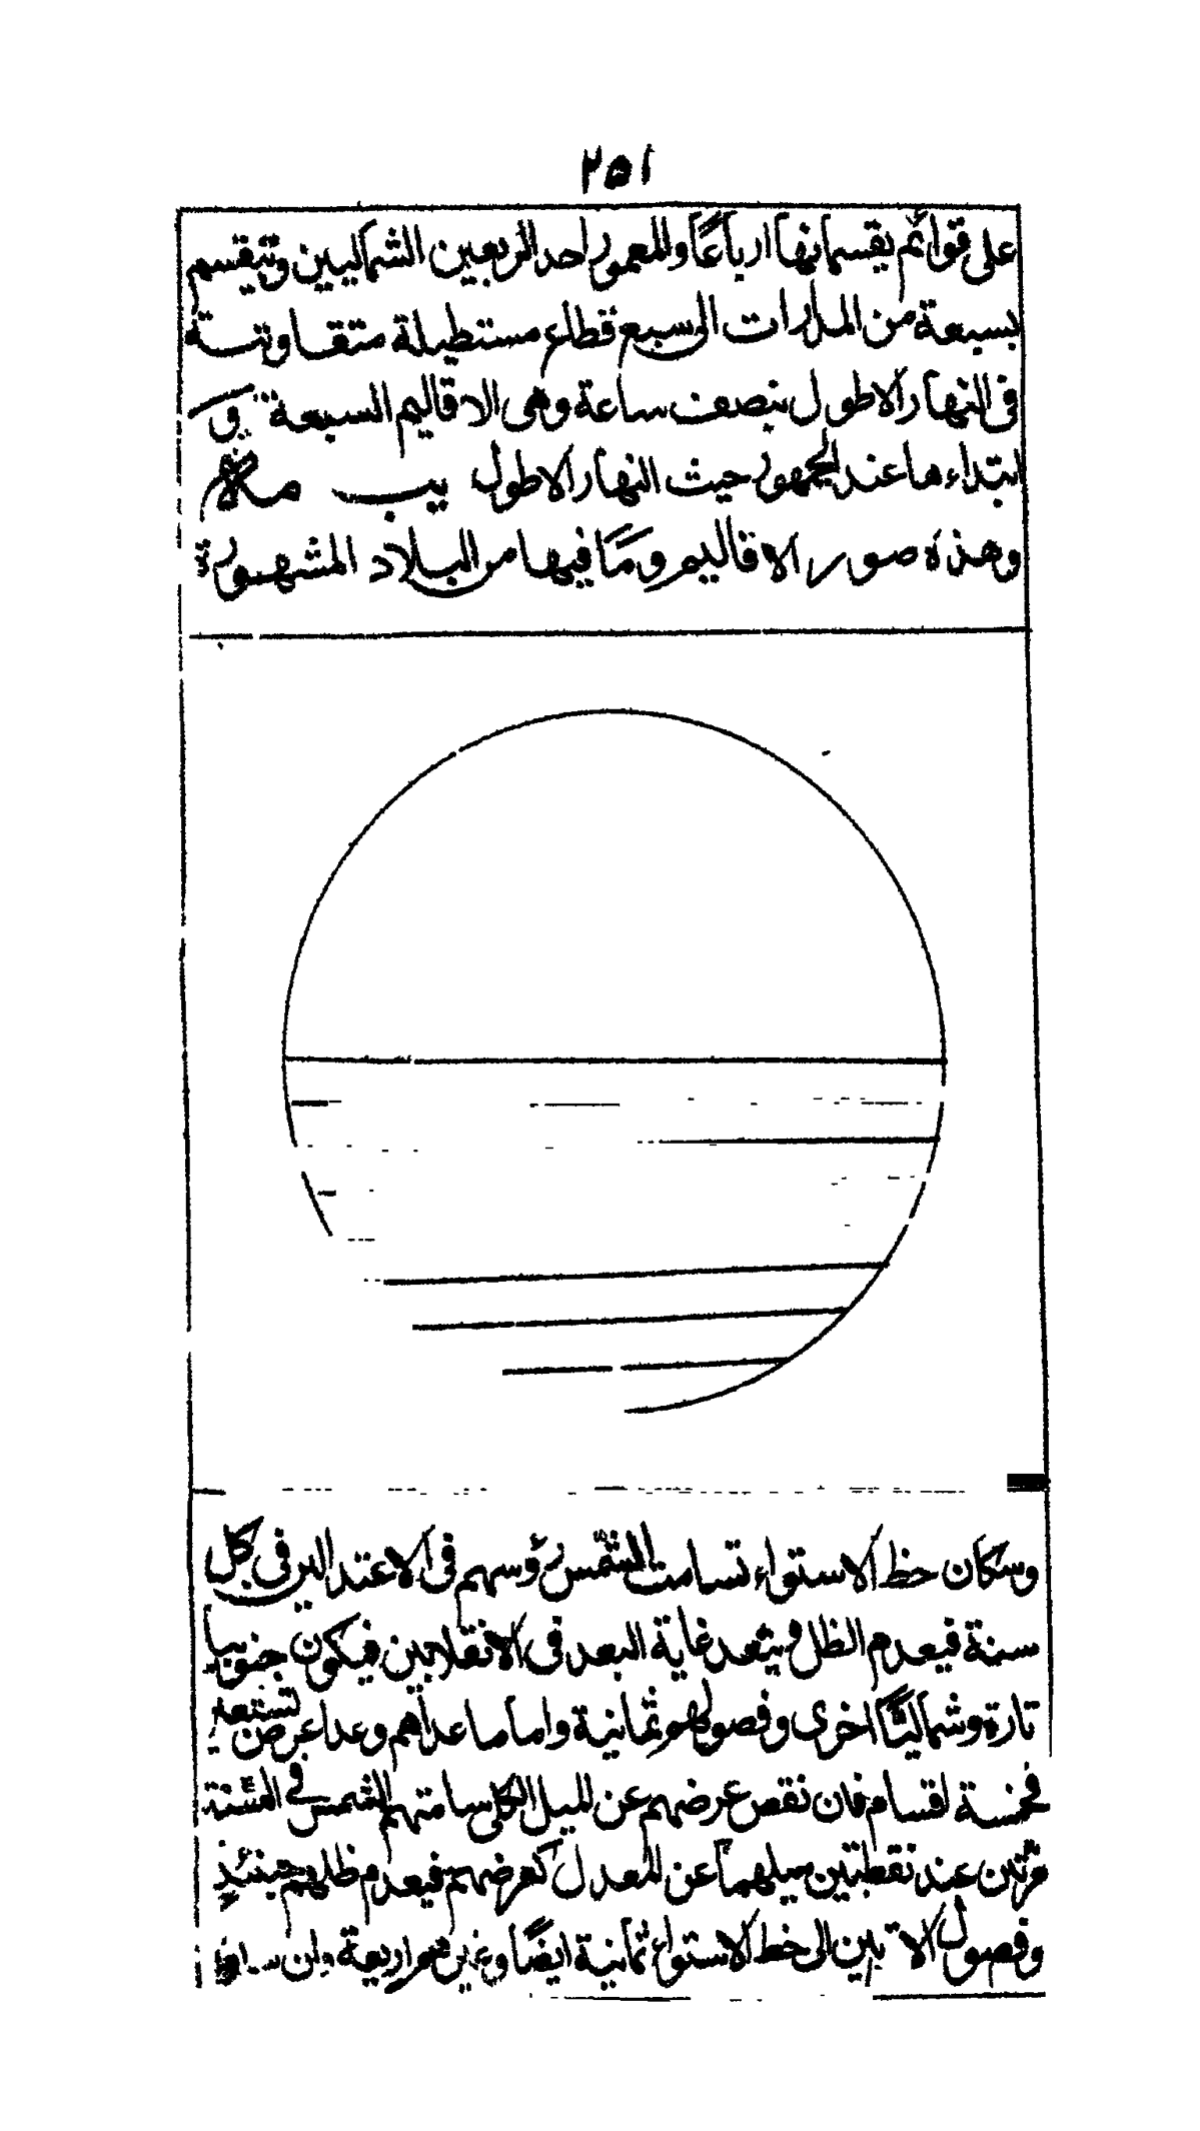 ٢٥١
على قوائم يقسمانها ارباعًا والمعمور احد الربعين الشماليين وتنقسم
بسبعة من المدارات الى سبع قطاع مستطيلة متفاوتة
فى النهار الاطول بنصف ساعة وهى الاقاليم السبعة و
ابتداءها عند الجمهور حيث النهار الاطول يب مه
وهذه صور الاقاليم وما فيها من البلاد المشهورة
وسكان خط الاستواء تسامت الشمس رؤسهم فى الاعتدالين فى كل
سنة فيعدم الظل ويبعد غاية البعد فى الانقلابين فيكون جنوبيا
تارة وشماليًا اخرى وفصولهم ثمانية واما ما عداهم وعدا عرض تسعين
فخمسة اقسام فان نقص عرضهم عن الميل الكلى سامتهم الشمس فى السنة
مرتين عند نقطتين ميلهما عن المعدل كعرضهم فيعدم ظلهم حينئذٍ
وفصول الاقربين الى خط الاستواء ثمانية ايضًا وغيرهم اربعة وان ساواه